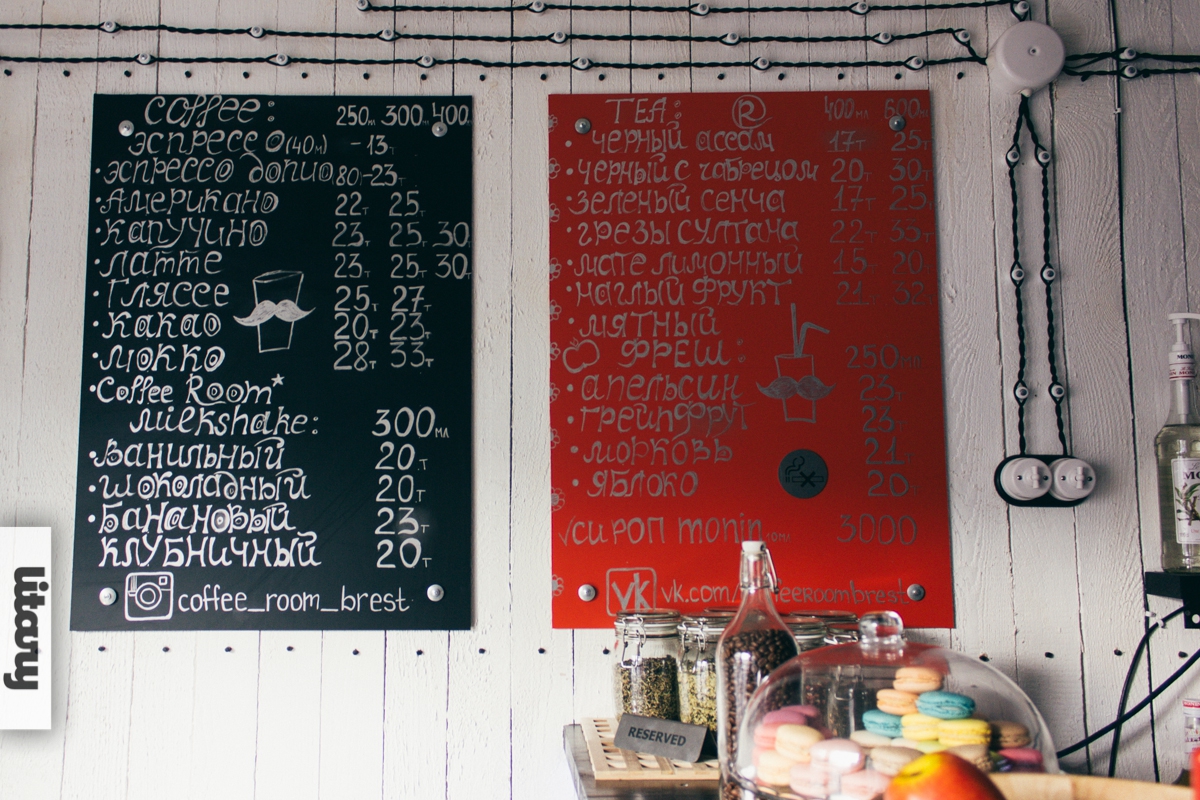 COFFEE: 250мл 300мл 400мл
эспрессо (40м) - 13т
• эспрессо допио (80) - 23т
• Американо 22т 25т
• Капучино 23т 25т 30т
• Латте 23т 25т 30т
• Гляссе 25т 27т
• Какао 20т 23т
• Мокко 28т 33т
• Coffee Room*
milkshake: 300мл
• Ванильный 20т
• шоколадный 20т
• Банановый 23т
клубничный 20т
coffee_room_brest
TEA: R 400мл 600мл
• черный асеам 17т 25т
• черный с чабрецом 20т 30т
• зеленый сенча 17т 25т
• грезы султана 22т 33т
• мате лимонный 15т 20т
• наглый фрукт 21т 32т
• мятный
ФРЕШ: 250мл
• апельсин 23т
• грейпфрут 23т
• морковь 21т
• яблоко 20т
√сироп monin 10мл 3000
vk vk.com/ eeroombrest
RESERVED
litavry